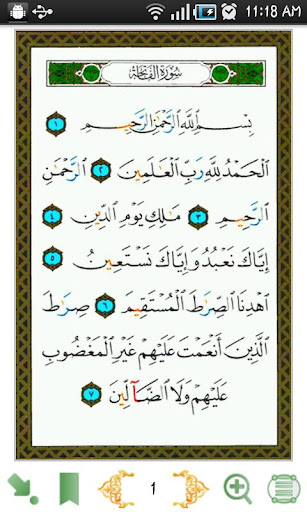 11:18 AM
سُورَةُ الْفَاتِحَةِ
بِسْمِ اللَّهِ الرَّحْمَٰنِ الرَّحِيمِ ١
الْحَمْدُ لِلَّهِ رَبِّ الْعَالَمِينَ ٢ الرَّحْمَٰنِ
الرَّحِيمِ ٣ مَالِكِ يَوْمِ الدِّينِ ٤
إِيَّاكَ نَعْبُدُ وَإِيَّاكَ نَسْتَعِينُ ٥
اهْدِنَا الصِّرَاطَ الْمُسْتَقِيمَ ٦ صِرَاطَ
الَّذِينَ أَنْعَمْتَ عَلَيْهِمْ غَيْرِ الْمَغْضُوبِ
عَلَيْهِمْ وَلَا الضَّآلِّينَ ٧
1